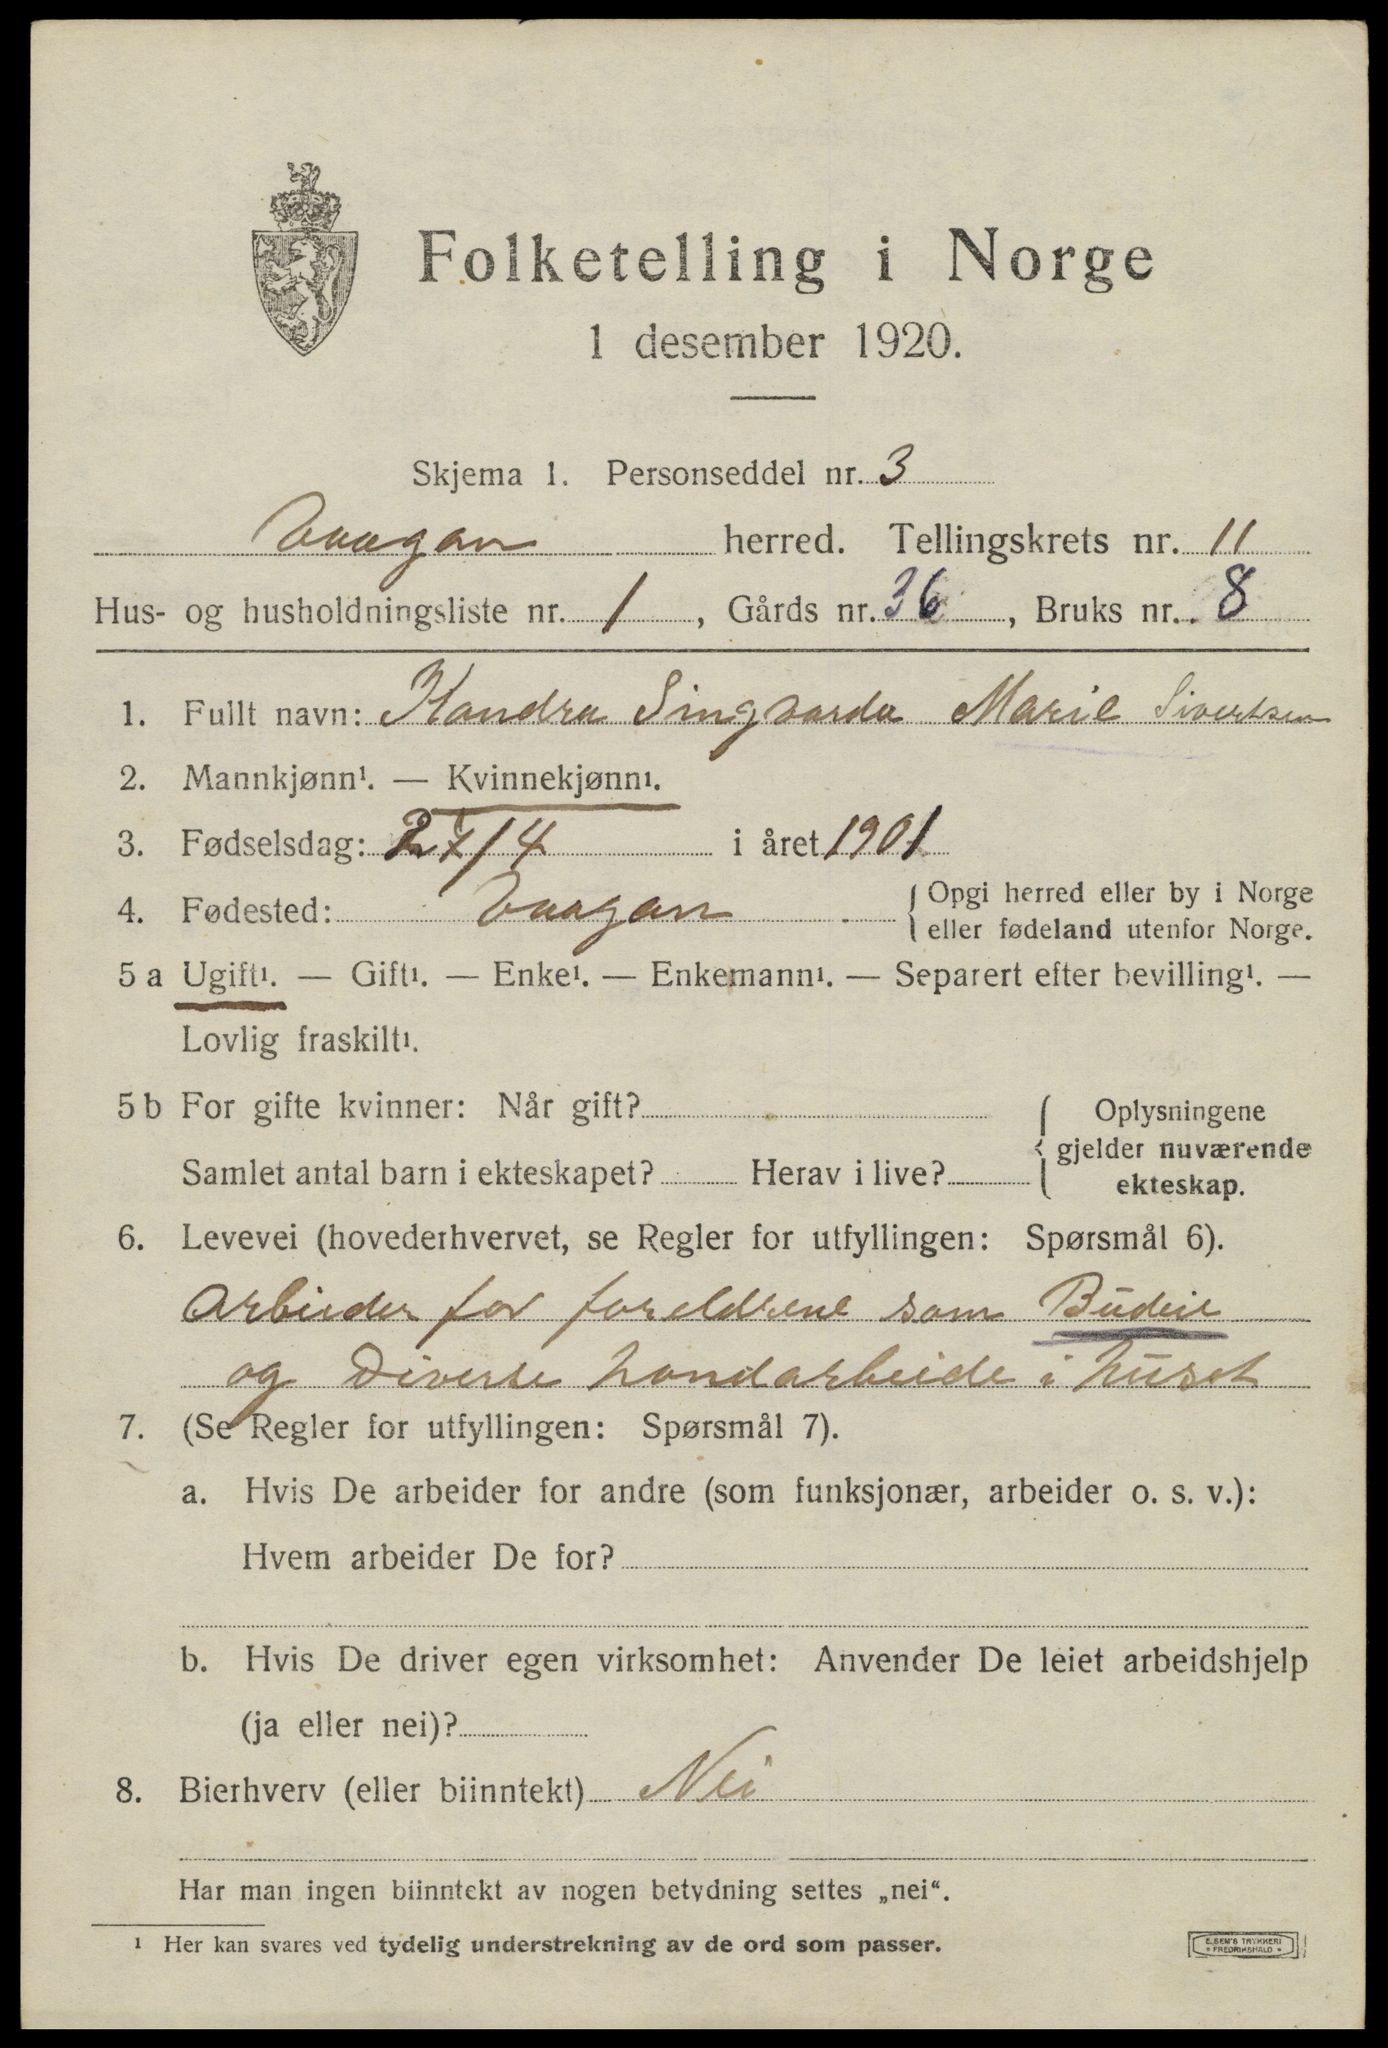 Folketelling i Norge
1 desember 1920.
Skjema 1. Personseddel nr. 3
Vaagan herred. Tellingskrets nr. 11
Hus- og husholdningsliste nr. 1, Gårds nr. 36, Bruks nr. 8
1. Fullt navn: Kandra Singvarda Marie Sivertsen
2. Mannkjønn¹. — Kvinnekjønn¹.
3. Fødselsdag: 27/4 i året 1901
4. Fødested: Vaagan { Opgi herred eller by i Norge
eller fødeland utenfor Norge.
5 a Ugift¹. — Gift¹. — Enke¹. — Enkemann¹. — Separert efter bevilling¹. —
Lovlig fraskilt¹.
5 b For gifte kvinner: Når gift? { Oplysningene
gjelder nuværende
Samlet antal barn i ekteskapet? Herav i live? ekteskap.
6. Levevei (hovederhvervet, se Regler for utfyllingen: Spørsmål 6).
Arbeider for foreldrene som Budeie
og Diverse handarbeide i huset
7. (Se Regler for utfyllingen: Spørsmål 7).
a. Hvis De arbeider for andre (som funksjonær, arbeider o. s. v.):
Hvem arbeider De for?
b. Hvis De driver egen virksomhet: Anvender De leiet arbeidshjelp
(ja eller nei)?
8. Bierhverv (eller biinntekt) Nei
Har man ingen biinntekt av nogen betydning settes „nei“.
¹ Her kan svares ved tydelig understrekning av de ord som passer.
E. SEM'S TRYKKERI
FREDRIKSHALD